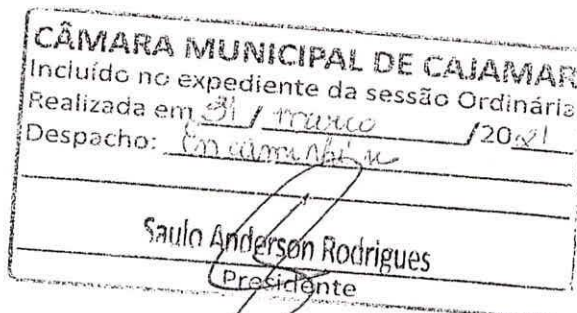 CÂMARA MUNICIPAL DE CAJAMAR
Incluído no expediente da sessão Ordinária
Realizada em 31 / março /2021
Despacho: Encaminhe-se
Saulo Anderson Rodrigues
Presidente